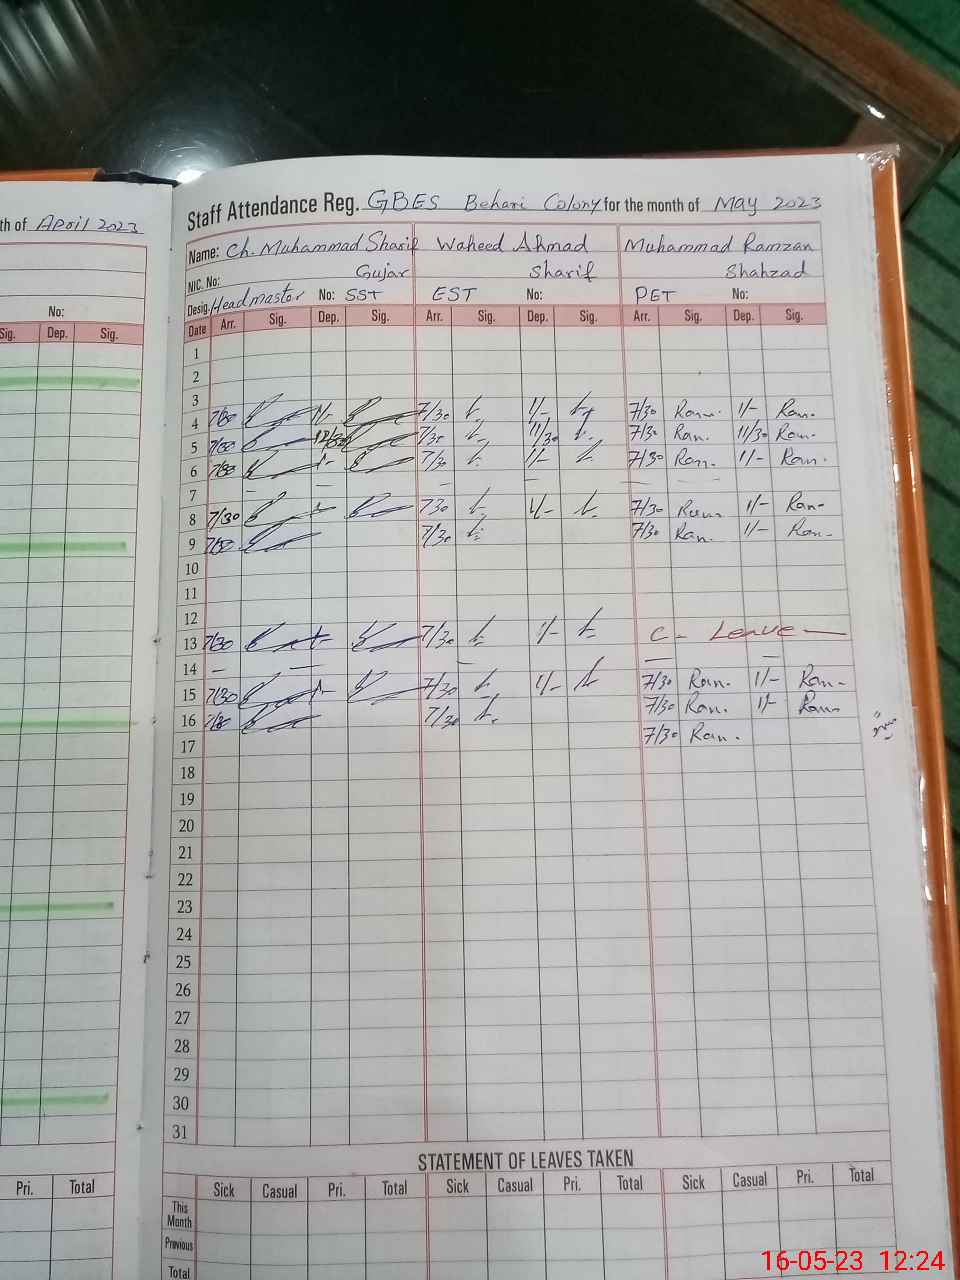 th of April 2023
No:
Sig. Dep. Sig.
Pri. Total
Staff Attendance Reg. GBES Behari Colony for the month of May 2023
Name: Ch. Muhammad Sharif Waheed Ahmad Muhammad Ramzan
NIC. No: Gujar Sharif Shahzad
Desig. Headmaster No: SST EST No: PET No:
Date Arr. Sig. Dep. Sig. Arr. Sig. Dep. Sig. Arr. Sig. Dep. Sig.
1
2
3
4 7/30 1/- 7/30 1/- 7/30 Ram. 1/- Ram.
5 7/30 7/30 11/30 7/30 Ram. 11/30 Ram.
6 7/30 1/- 7/30 1/- 7/30 Ram. 1/- Ram.
7 — — — —
8 7/30 730 1/- 7/30 Ram 1/- Ram-
9 7/30 7/30 7/30 Ram. 1/- Ram-
10
11
12
13 7/30 1- 7/30 1/- C- Leave —
14 — — — — —
15 7/30 1- 7/30 1/- 7/30 Ram. 1/- Ram-
16 7/30 7/30 7/30 Ram. 1/- Ram
17 7/30 Ram.
18
19
20
21
22
23
24
25
26
27
28
29
30
31
STATEMENT OF LEAVES TAKEN
Sick Casual Pri. Total Sick Casual Pri. Total Sick Casual Pri. Total
This
Month
Previous
Total
16-05-23 12:24